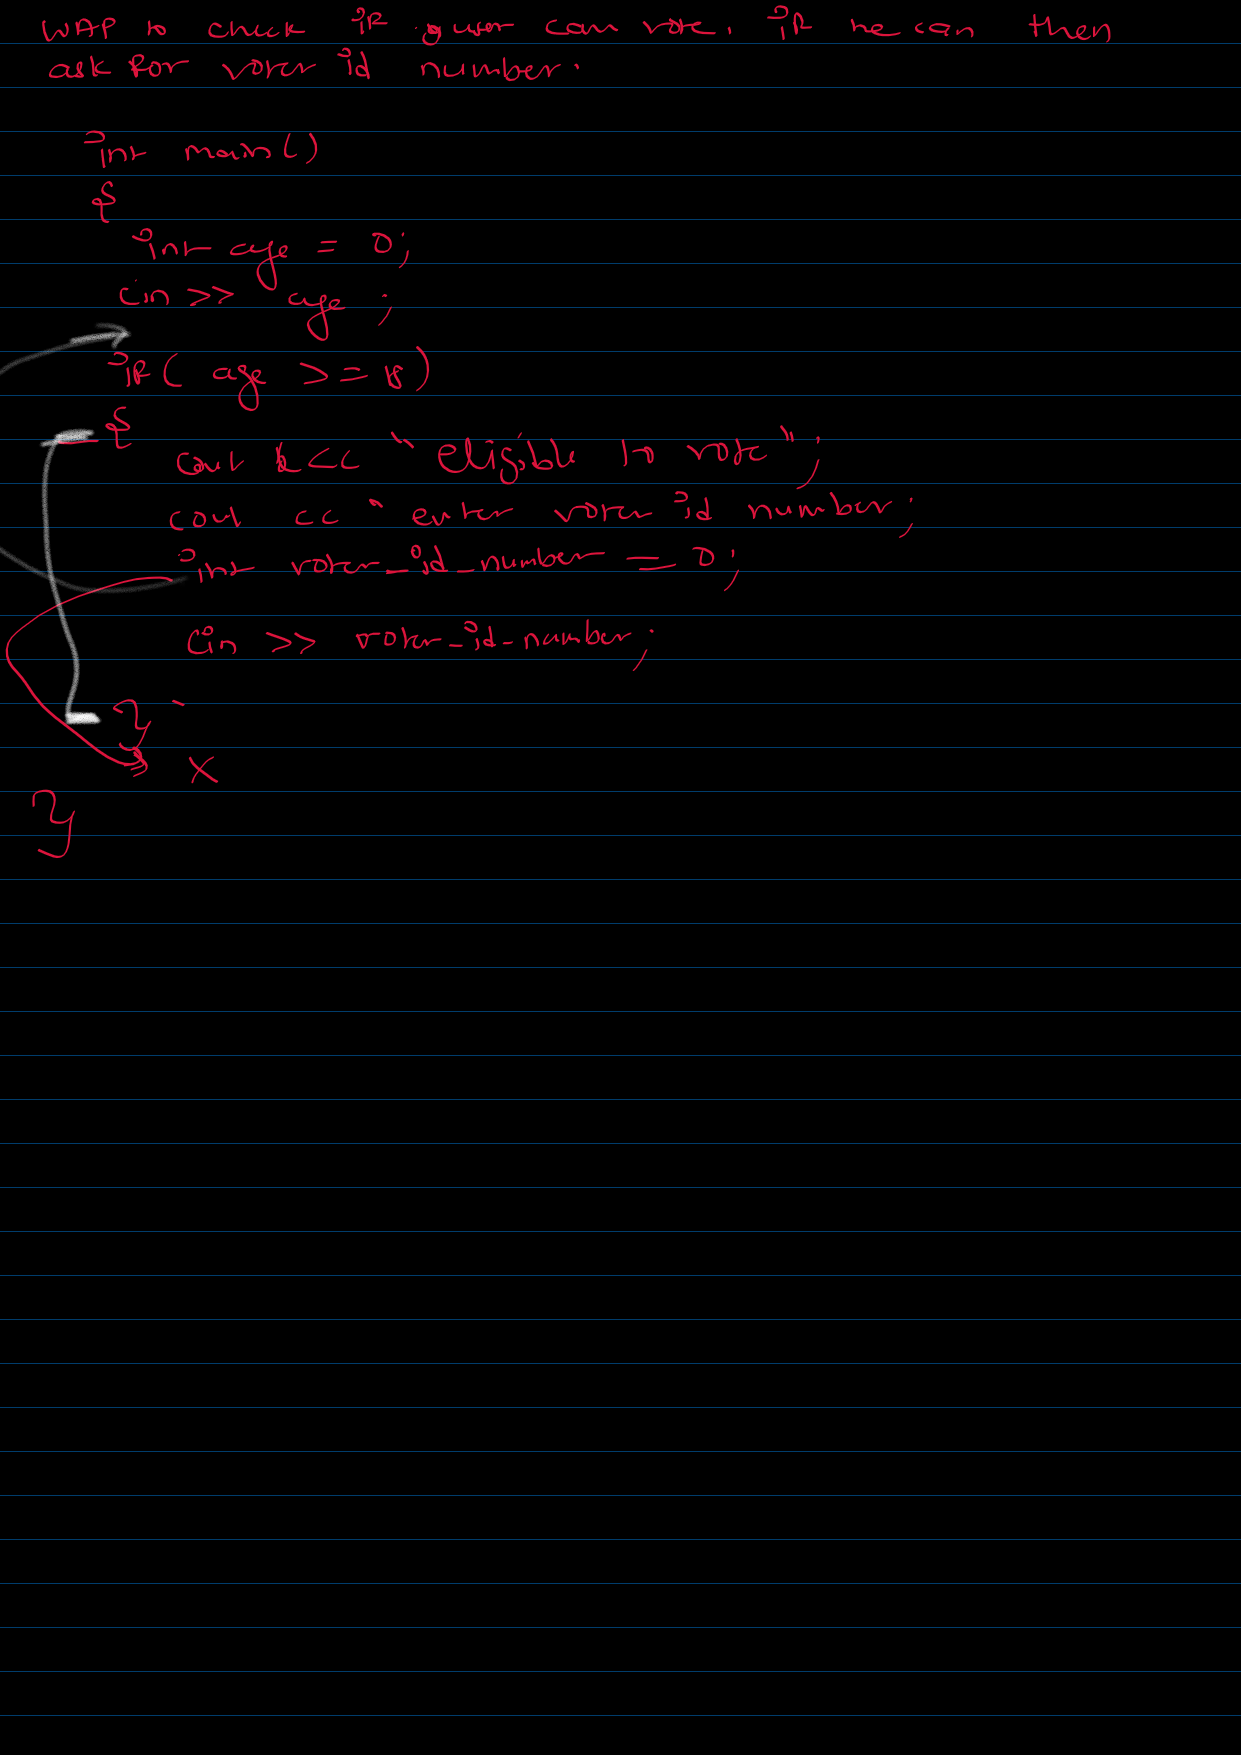 WAP to check if a user can vote. if he can then
ask for voter id number.
int main()
{
int age = 0;
cin >> age ;
if( age >= 18)
{
cout << "eligible to vote";
cout << " enter voter id number;
int voter_id_number = 0;
cin >> voter_id_number;
}
x
}